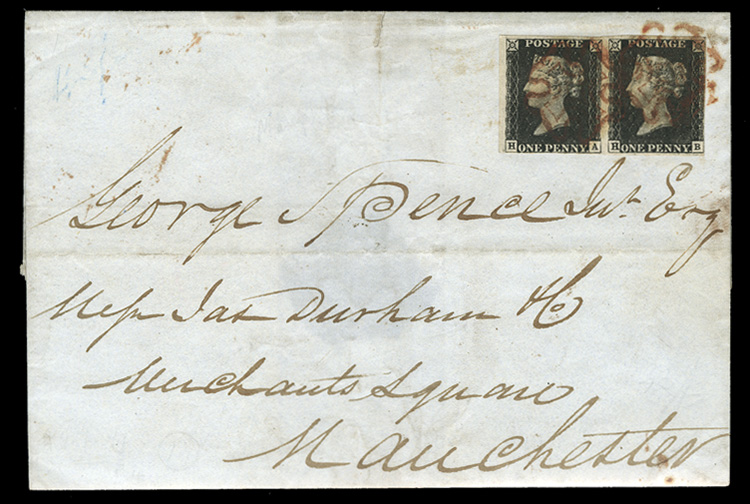 POSTAGE POSTAGE
H A H B
ONE PENNY ONE PENNY
George Spence Junr Esq
Messrs Jas Durham & Co
Merchants Square
Manchester